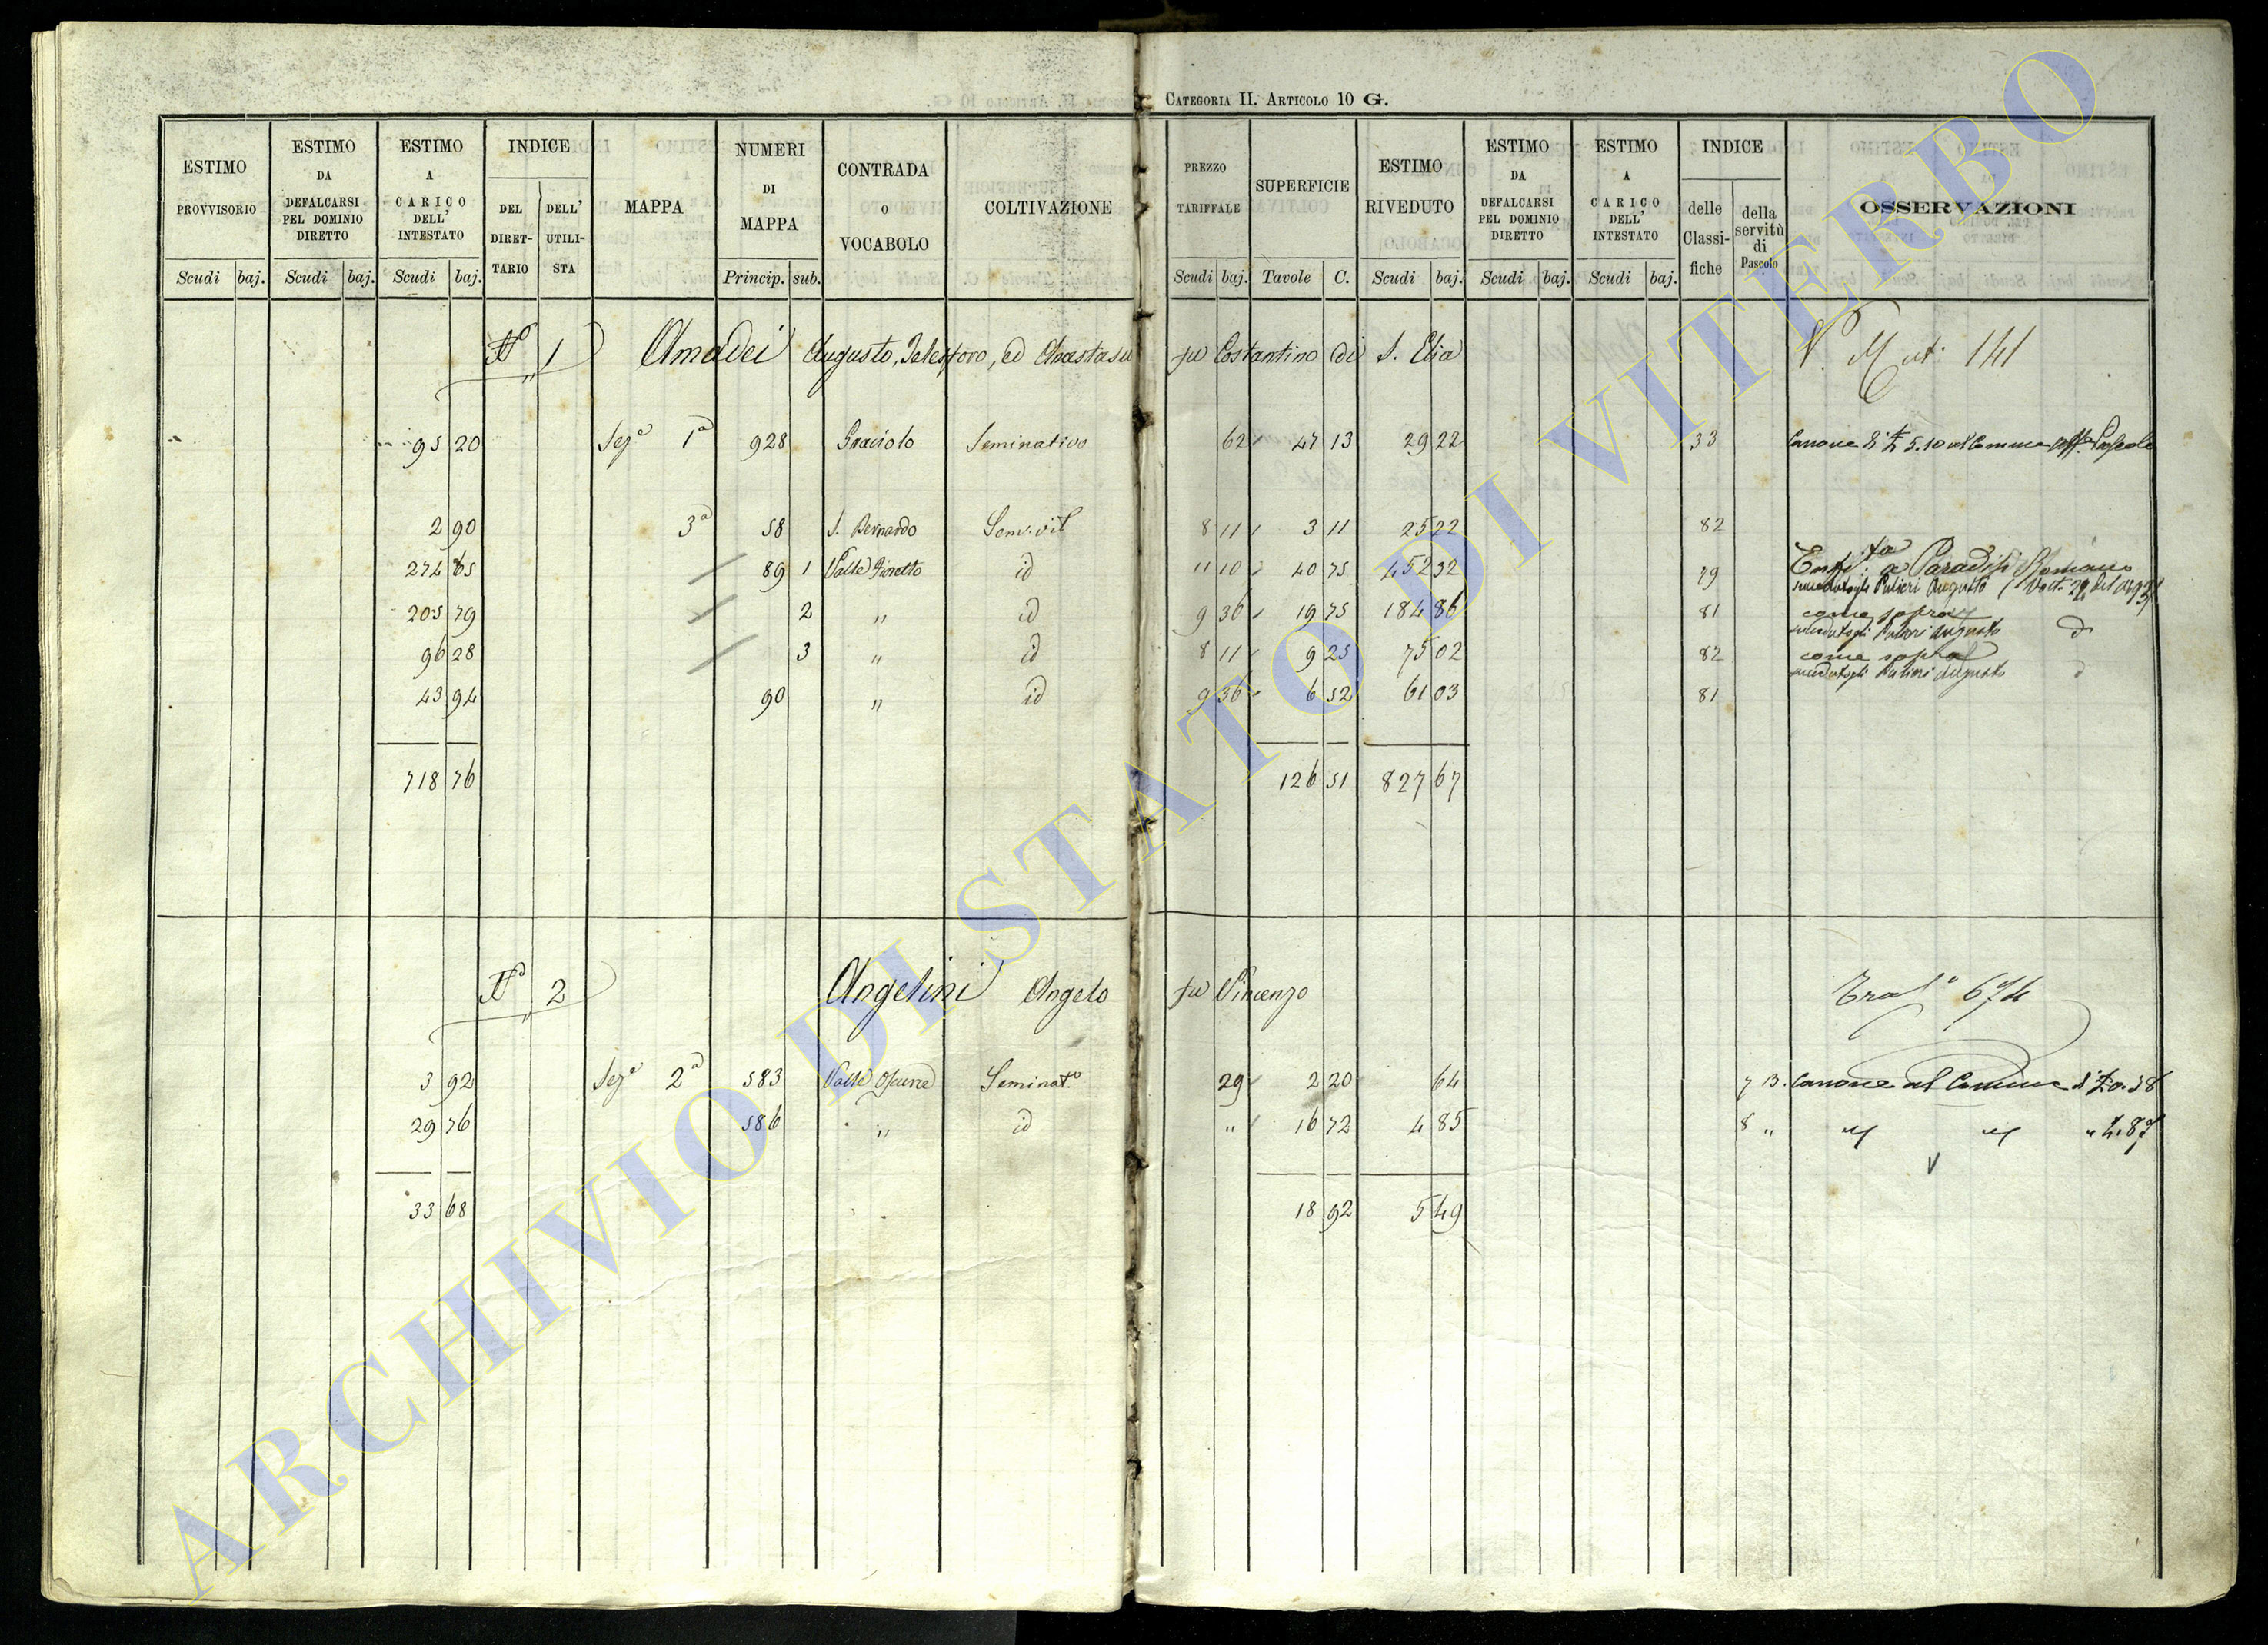 CATEGORIA II. ARTICOLO 10 G.
ESTIMO PROVVISORIO Scudi baj.
ESTIMO DA DEFALCARSI PEL DOMINIO DIRETTO Scudi baj.
ESTIMO A CARICO DELL' INTESTATO Scudi baj.
INDICE DEL DIRETTARIO DELL' UTILISTA
MAPPA
NUMERI DI MAPPA Princip. sub.
CONTRADA O VOCABOLO
COLTIVAZIONE
PREZZO TARIFFALE Scudi baj.
SUPERFICIE Tavole C.
ESTIMO RIVEDUTO Scudi baj.
ESTIMO DA DEFALCARSI PEL DOMINIO DIRETTO Scudi baj.
ESTIMO A CARICO DELL' INTESTATO Scudi baj.
INDICE delle Classifiche della servitù di Pascolo
OSSERVAZIONI
N° 1 Amadei Augusto, Telesforo, ed Anastasio fu Costantino di S. Elia V. Mut. 141
95 20 Sez.e 1a 928 Seminativo 62 47 13 29 22 33 Canone di 5.10 al Comune
2 90 3a 58 S. Bernardo Sem. vit 8 11 3 11 25 22 82
274 65 89 1 Valle id 11 10 40 75 452 32 79 a Paradisi Romano
Augusto
205 79 2 " id 9 36 19 75 184 86 81 come sopra
Augusto
96 28 3 " id 8 11 9 25 75 02 82 come sopra
Augusto
43 94 90 " id 9 36 6 52 61 03 81
718 76 126 51 827 67
N° 2 Angelini Angelo fu Vincenzo 674
3 92 Sez.e 2a 583 Valle Oscura Seminat.o 29 2 20 64 7 B. Canone al Comune di 0.58
29 76 586 " id " 16 72 4 85 8 " " " " 4.87
33 68 18 92 5 49
ARCHIVIO DI STATO DI VITERBO